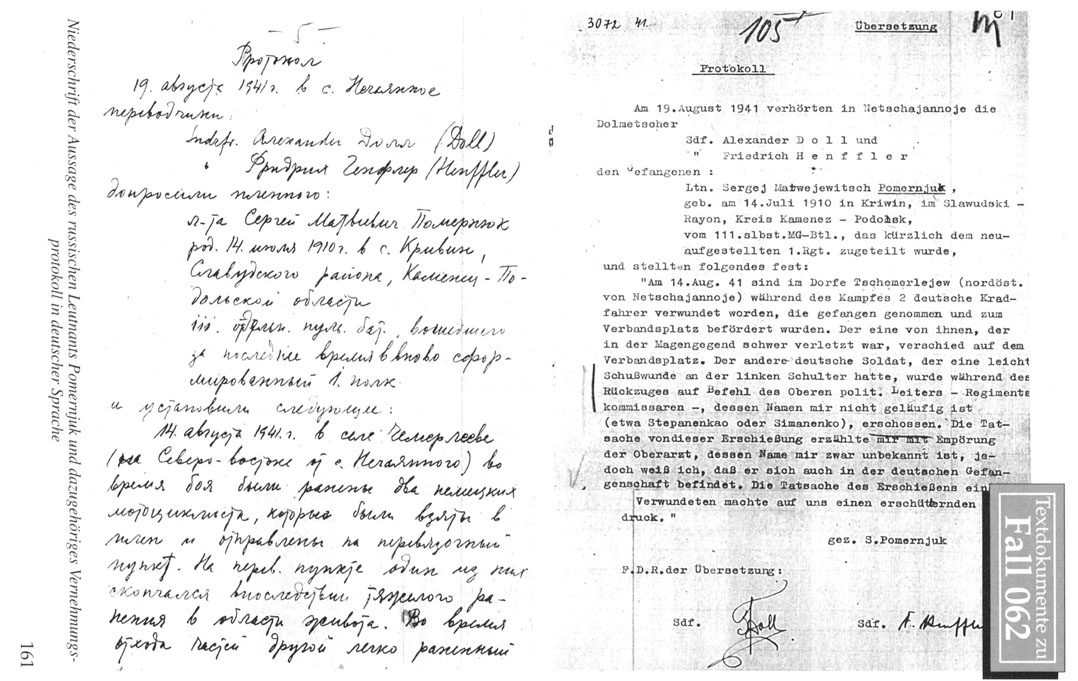 - 5 -
Протокол
19. августа 1941 г. в с. Нечаянное
переводчики:
Sndrf. Alexander Долл (Doll)
" Фридрих Генфлер (Henffler)
допросили пленного:
л-та Сергей Матвиевич Помернюк
род. 14. июля 1910 г. в с. Кривин,
Славудского района, Каменец-По-
дольской области
111. отдельн. пул. бат., вошедшего
за последнее время в вновь сфор-
мированный 1. полк
и установили следующее:
14. августа 1941. г. в селе Чемерлеево
(на Северо-востоке от с. Нечаянного) во
время боя были ранены два немецких
мотоциклиста, которые были взяты в
плен и отправлены на перевязочный
пункт. На перев. пункте один из них
скончался впоследствии тяжелого ра-
нения в области живота. Во время
отхода частей другой легко раненный
Niederschrift der Aussage des russischen Leutnants Pomernjuk und dazugehöriges Vernehmungs-
protokoll in deutscher Sprache
161
3072 41.
105
Übersetzung
Protokoll
Am 19.August 1941 verhörten in Netschajannoje die
Dolmetscher
Sdf. Alexander D o l l und
" Friedrich H e n f f l e r
den Gefangenen :
Ltn. Sergej Matwejewitsch Pomernjuk ,
geb. am 14.Juli 1910 in Kriwin, im Slawudski -
Rayon, Kreis Kamenez - Podolsk,
vom 111.slbst.MG-Btl., das kürzlich dem neu-
aufgestellten 1.Rgt. zugeteilt wurde,
und stellten folgendes fest:
"Am 14.Aug. 41 sind im Dorfe Tschemerlejew (nordöst.
von Netschajannoje) während des Kampfes 2 deutsche Krad-
fahrer verwundet worden, die gefangen genommen und zum
Verbandsplatz befördert wurden. Der eine von ihnen, der
in der Magengegend schwer verletzt war, verschied auf dem
Verbandsplatz. Der andere deutsche Soldat, der eine leicht
Schußwunde an der linken Schulter hatte, wurde während des
Rückzuges auf Befehl des Oberen polit. Leiters - Regiments
kommissaren -, dessen Namen mir nicht geläufig ist
(etwa Stepanenkao oder Simanenko), erschossen. Die Tat-
sache vondieser Erschießung erzählte mir mit Empörung
der Oberarzt, dessen Name mir zwar unbekannt ist, je-
doch weiß ich, daß er sich auch in der deutschen Gefan-
genschaft befindet. Die Tatsache des Erschießens ein
Verwundeten machte auf uns einen erschütternden
druck."
gez. S.Pomernjuk
F.D.R.der Übersetzung:
Sdf. Doll
Sdf. F. Henffle
Textdokumente zu
Fall 062